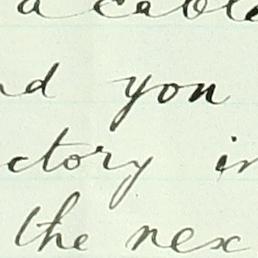 a cable
nd you
ctory in
the nex